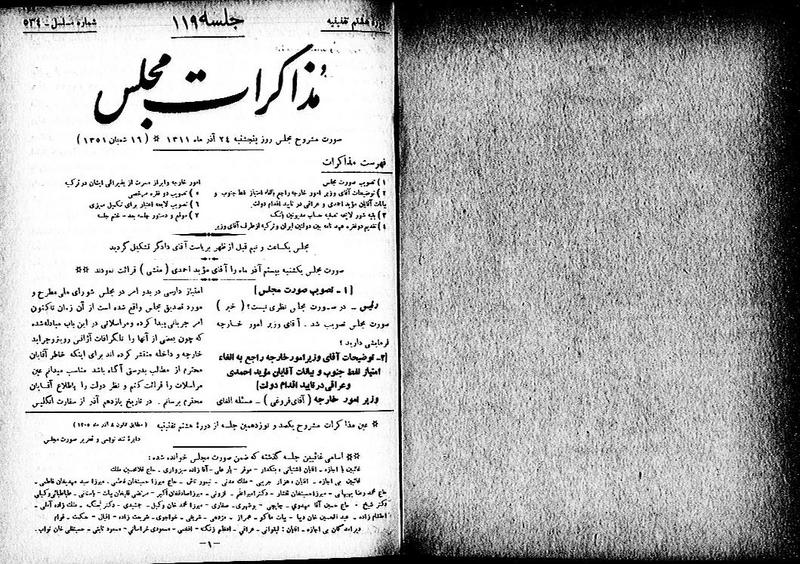 دوره هشتم تقنینیه
جلسه ۱۱۹
شماره مسلسل - ۵۳۴
مذاکرات مجلس
صورت مشروح مجلس روز پنجشنبه ۲۴ آذر ماه ۱۳۱۱ * (۱۶ شعبان ۱۳۵۱)
فهرست مذاکرات
۱) تصویب صورت مجلس
۲) توضیحات آقای وزیر امور خارجه راجع بالغاء امتیاز نفط جنوب و
بیانات آقایان مؤید احمدی و عراقی در تایید اقدام دولت
۳) بقیه شور لایحه تصفیه حساب مدیونین بانک
۴) تقدیم دو فقره عهد نامه بین دولتین ایران و ترکیه از طرف آقای وزیر
امور خارجه و ابراز مسرت از پذیرائی ایشان در ترکیه
۵) تصویب دو فقره مرخصی
۶) تصویب لایحه اعتبار برای تکمیل ممیزی
۷) موقع و دستور جلسه بعد - ختم جلسه
مجلس یکساعت و نیم قبل از ظهر بریاست آقای دادگر تشکیل گردید
صورت مجلس یکشنبه بیستم آذر ماه را آقای مؤید احمدی (منشی) قرائت نمودند **
[۱ - تصویب صورت مجلس]
رئیس - در صورت مجلس نظری نیست؟ (خیر)
صورت مجلس تصویب شد . آقای وزیر امور خارجه
فرمایشی دارید ؟
[۲- توضیحات آقای وزیر امور خارجه راجع به الغاء
امتیاز نفط جنوب و بیانات آقایان مؤید احمدی
و عراقی در تایید اقدام دولت]
وزیر امور خارجه (آقای فروغی) - مسئله الغای
امتیاز دارسی در بدو امر در مجلس شورای ملی مطرح و
مورد تصدیق مجلس واقع شده است از آن زمان تاکنون
امر جریانی پیدا کرده و مراسلاتی در این باب مبادله شده
که چون بعضی از آنها را تلگرافات آژانس رویتر و جراید
خارجه و داخله منتشر کرده اند برای اینکه خاطر آقایان
محترم از مطالب بدرستی آگاه باشد مناسب میدانم عین
مراسلات را قرائت کنم و نظر دولت را باطلاع آقایان
محترم برسانم . در تاریخ یازدهم آذر از سفارت انگلیس
* عین مذاکرات مشروح یکصد و نوزدهمین جلسه از دورهٔ هشتم تقنینیه (مطابق قانون ۸ آذر ماه ۱۳۰۵)
دایرهٔ تند نویسی و تحریر صورت مجلس
** اسامی غائبین جلسه گذشته که ضمن صورت مجلس خوانده شده :
غائبین با اجازه - آقایان
غائبین بی اجازه - آقایان
دیرآمدگان بی اجازه - آقایان :
-۱-